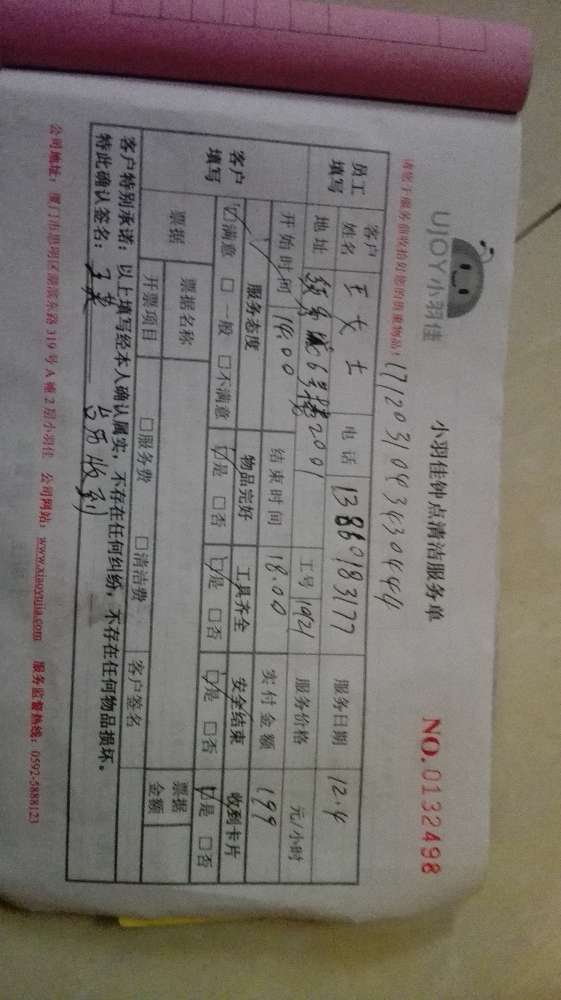 UJOY小羽佳
小羽佳钟点清洁服务单
NO.0132498
请您于服务前收拾好您的贵重物品!
17120310434430444
员工填写
客户姓名 王女士 电话 13860183177 服务日期 12.4
地址 6号楼2001 工号 1921 服务价格 元/小时
开始时间 14.00 结束时间 18.00 实付金额 199
客户填写
服务态度 物品完好 工具齐全 安全结束 收到卡片
☑满意 □一般 □不满意 ☑是 □否 ☑是 □否 ☑是 □否 ☑是 □否
票据 票据名称 票据金额
开票项目 □服务费 □清洁费 客户签名
客户特别承诺:以上填写经本人确认属实,不存在任何纠纷,不存在任何物品损坏。
特此确认签名:王 收到
公司地址:厦门市思明区湖滨东路319号A幢2层小羽佳 公司网站:www.xiaoyujia.com 服务监督热线:0592-5888123